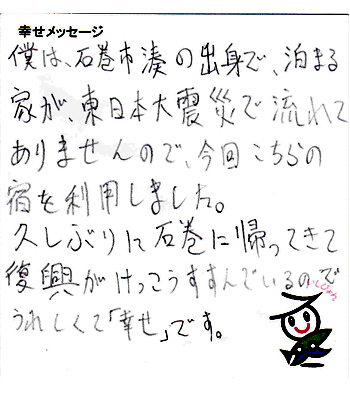 幸せメッセージ
僕は、石巻市湊の出身で、泊まる
家が、東日本大震災で流れて
ありませんので、今回こちらの
宿を利用しました。
久しぶりに石巻に帰ってきて
復興がけっこうすすんでいるので
うれしくて「幸せ」です。